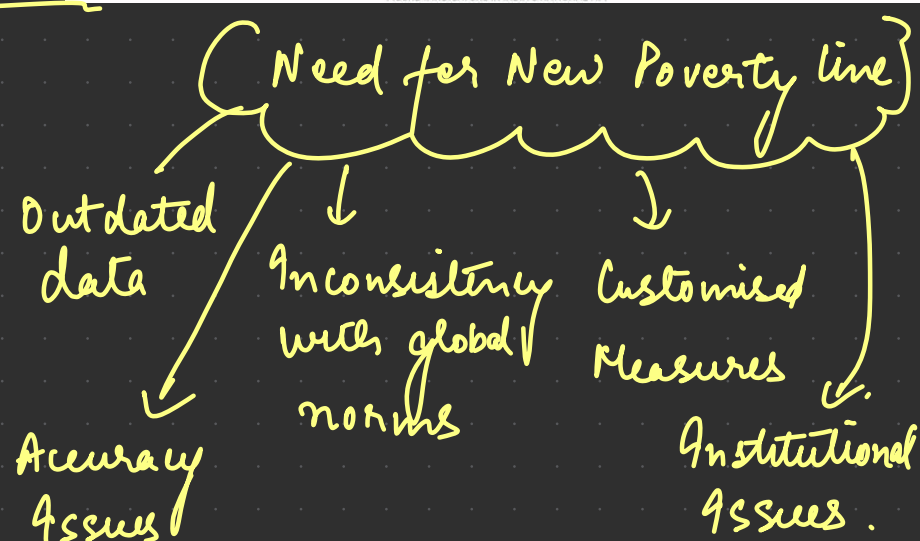 Need for New Poverty line
Outdated
data
Inconsistency
with global
norms
Customised
Measures
Accuracy
Issues
Institutional
Issues.